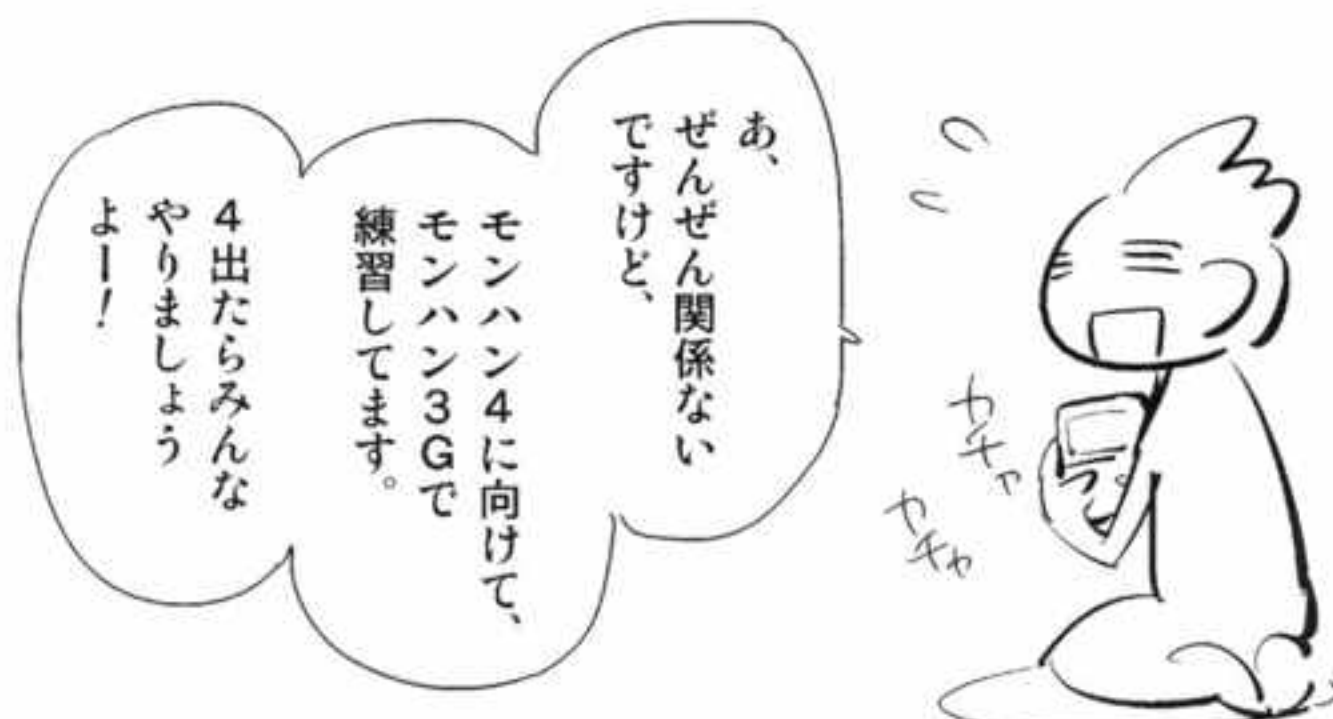 あ、
ぜんぜん関係ない
ですけど、
モンハン4に向けて、
モンハン3Gで
練習してます。
4出たらみんな
やりましょう
よー！
カチャ
カチャ